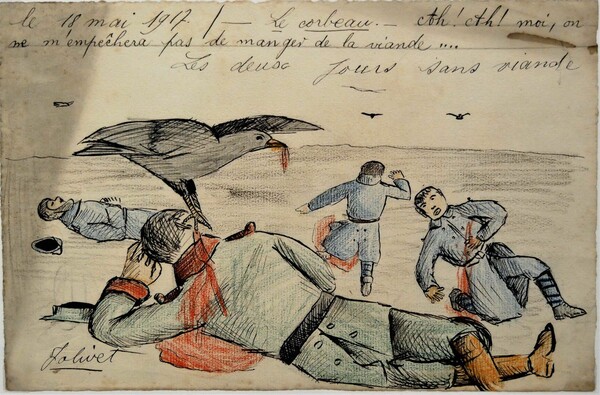 le 18 mai 1917. / — Le corbeau. — Ah! Ah! moi, on
ne m'empêchera pas de manger de la viande ....
Les deux jours sans viande
Jolivet